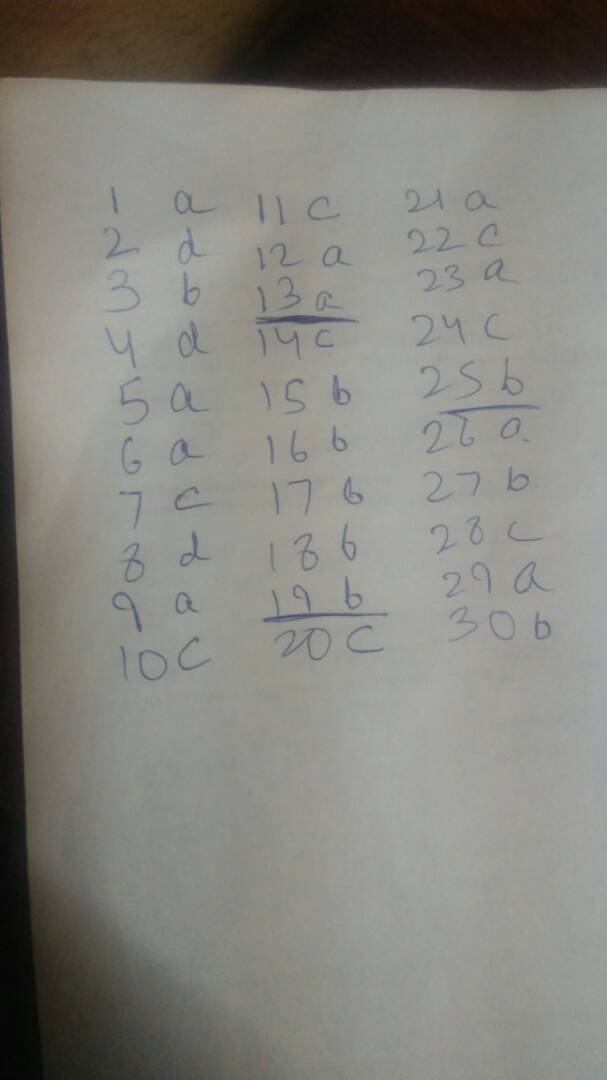 1 a
2 d
3 b
4 d
5 a
6 a
7 c
8 d
9 a
10 C
11 c
12 a
13 a
14 c
15 b
16 b
17 b
18 b
19 b
20 C
21 a
22 c
23 a
24 c
25 b
26 a
27 b
28 c
29 a
30 b